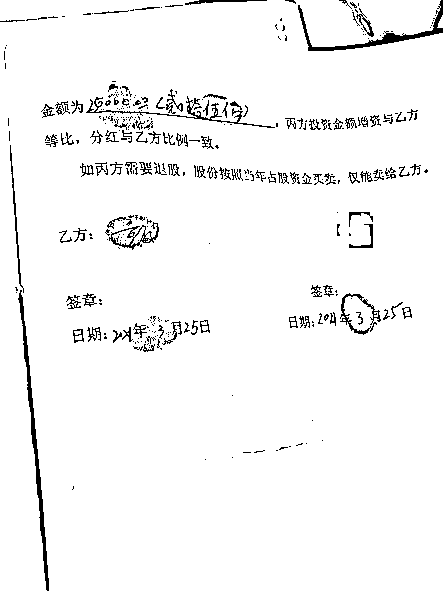 金额为25000.00(贰拾伍仟),丙方投资金额增资与乙方
等比,分红与乙方比例一致。
如丙方需要退股,股份按照当年占股资金买卖,仅能卖给乙方。
乙方:
签章:
签章:
日期:2021年3月25日
日期:2021年3月25日